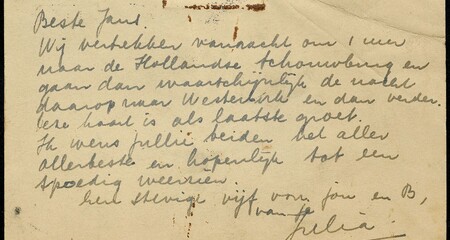 Beste Jans.
Wij vertrekken vannacht om 1 uur
naar de Hollandse Schouwburg en
gaan dan waarschijnlijk de nacht
daarop naar Westerbork en dan verder.
Deze kaart is als laatste groet.
Ik wens jullie beiden het aller
allerbeste en hopenlijk tot een
spoedig weerzien.
Een stevige vijf voor jou en B,
van je
Julia.